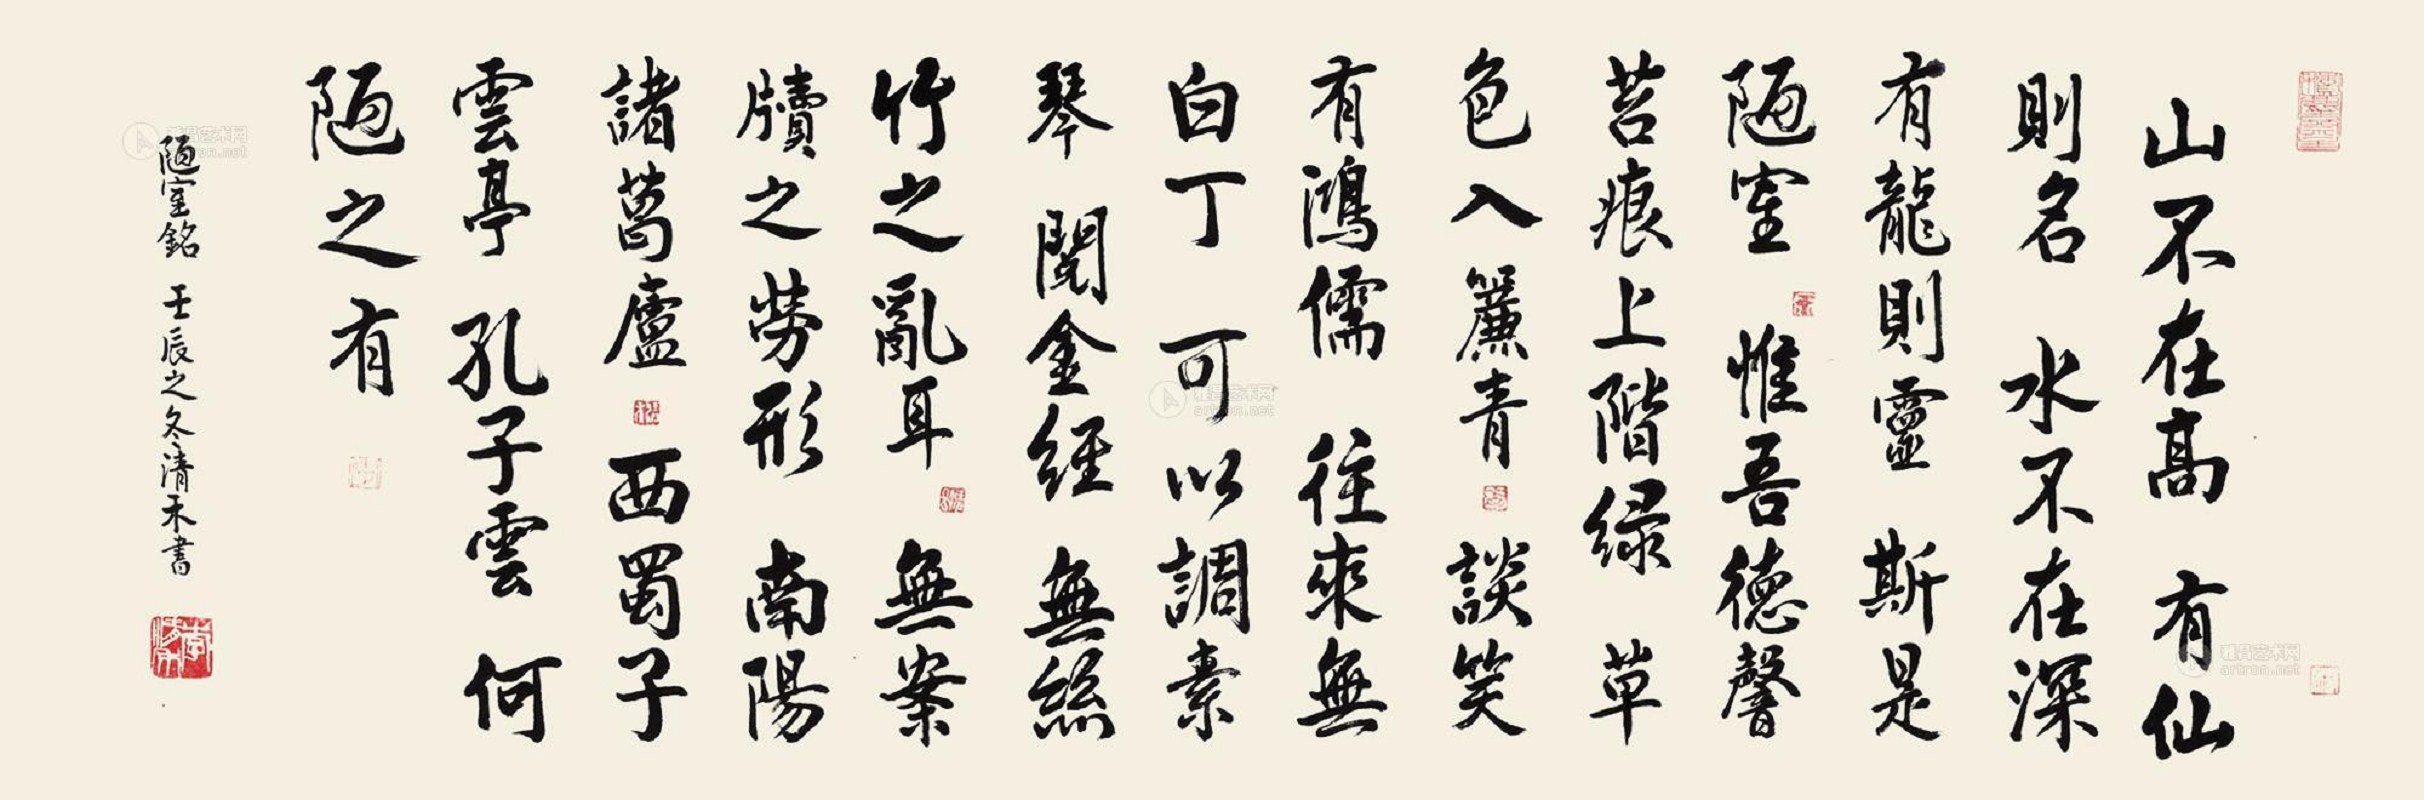 山不在高　有仙
則名　水不在深
有龍則靈　斯是
陋室　惟吾德馨
苔痕上階緑　草
色入簾青　談笑
有鴻儒　往來無
白丁　可以調素
琴　閱金經　無絲
竹之亂耳　無案
牘之勞形　南陽
諸葛廬　西蜀子
雲亭　孔子雲　何
陋之有
陋室銘　壬辰之冬　清禾書
雅昌艺术网
artron.net